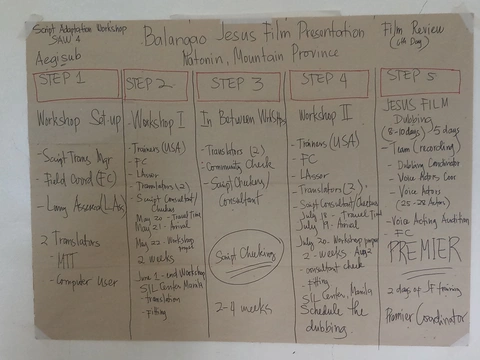 Script Adaptation Workshop
SAW 1
Aegisub
Balangao Jesus Film Presentation
Natonin, Mountain Province
Film Review
STEP 1
Workshop Set-up
- Script Trans. Mgr
- Field Coord (FC)
2 Translators
- MTT
- Computer User
STEP 2
Workshop I
- Trainers (USA)
- FC
- Translators (2)
- Script Consultant/
Checker
May 20 - Travel Time
May 21 - Arrival
May 22 - Workshop
2 weeks
June 1 - end Workshop
SIL Center Manila
- translation
- fitting
STEP 3
In Between Wkshps
- Translators (2)
- Community Check
- Script Checkers/
Consultant
Script Checking
2-4 weeks
STEP 4
Workshop II
- Trainers (USA)
- FC
- LAssor
- Translators (3)
- Script Consultant/Checker
July 18 - Travel Time
July 19 - Arrival
July 20 - Workshop
2 - weeks Aug 2
- consultant check
- fitting
SIL Center, Manila
Schedule the
dubbing.
STEP 5
JESUS FILM
Dubbing
(8-10 days) 5 days
- Team (recording)
- Dubbing Coordinator
- Voice Actors Coor
- Voice Actors
(25-28 Actors)
- Voice Acting Audition
- FC
PREMIER
2 days of JF training
Premier Coordinator